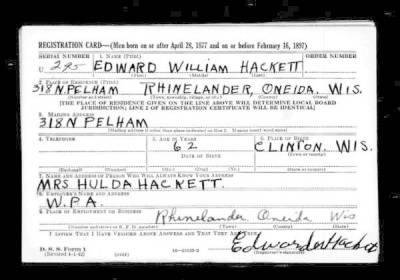 REGISTRATION CARD—(Men born on or after April 28, 1877 and on or before February 16, 1897)
SERIAL NUMBER 1. NAME (Print) ORDER NUMBER
U 295 EDWARD WILLIAM HACKETT
(First) (Middle) (Last)
2. PLACE OF RESIDENCE (Print)
318 N. PELHAM RHINELANDER, ONEIDA, WIS.
(Number and street) (Town, township, village, or city) (County) (State)
[THE PLACE OF RESIDENCE GIVEN ON THE LINE ABOVE WILL DETERMINE LOCAL BOARD
JURISDICTION; LINE 2 OF REGISTRATION CERTIFICATE WILL BE IDENTICAL]
3. MAILING ADDRESS
318 N PELHAM
[Mailing address if other than place indicated on line 2. If same insert word same]
4. TELEPHONE 5. AGE IN YEARS 6. PLACE OF BIRTH
62 CLINTON. WIS.
DATE OF BIRTH
7. NAME AND ADDRESS OF PERSON WHO WILL ALWAYS KNOW YOUR ADDRESS
MRS HULDA HACKETT.
8. EMPLOYER'S NAME AND ADDRESS
W.P.A.
9. PLACE OF EMPLOYMENT OR BUSINESS
Rhinelander Oneida Wis
I AFFIRM THAT I HAVE VERIFIED ABOVE ANSWERS AND THAT THEY ARE TRUE.
D. S. S. Form 1
(Revised 4-1-42)